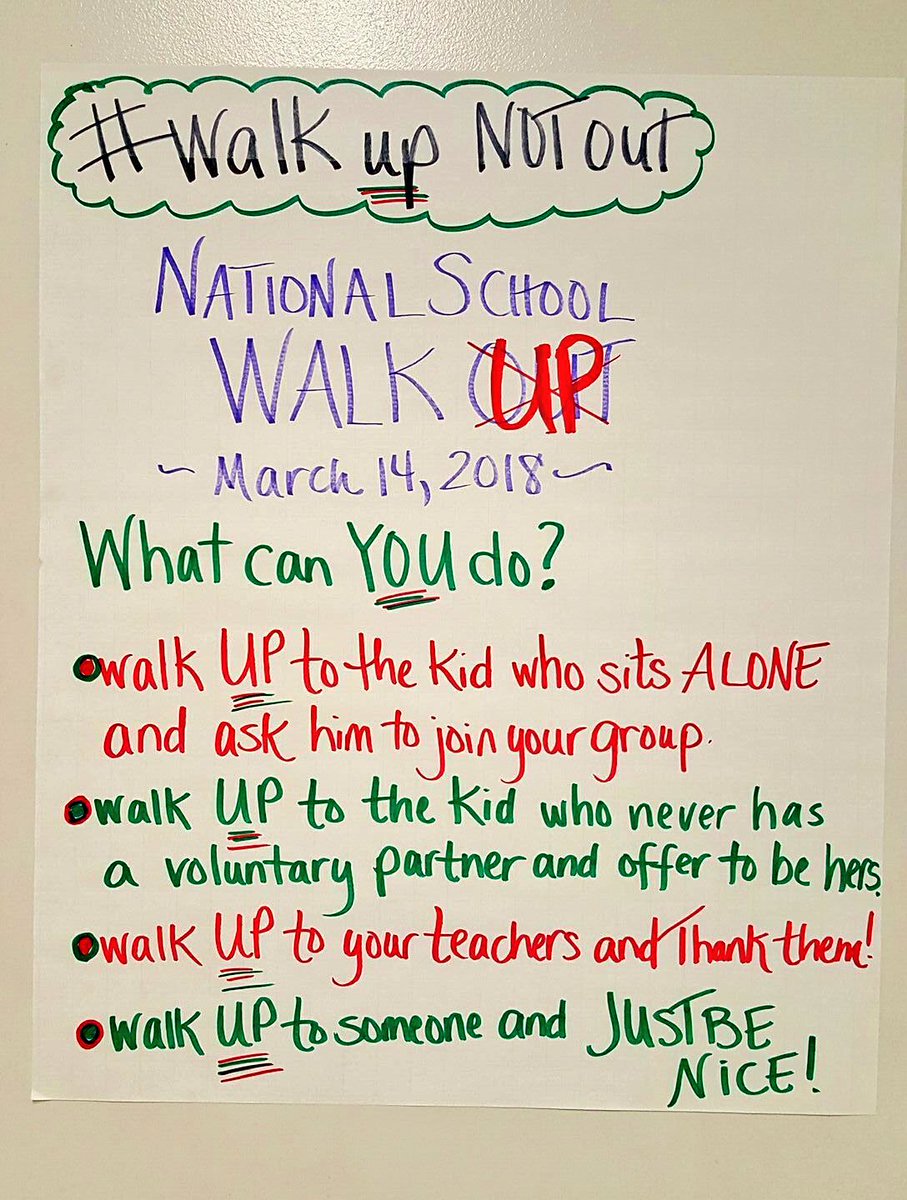 #walk up NOT out
NATIONAL SCHOOL
WALK OUT UP
~ March 14, 2018 ~
What can YOU do?
• walk UP to the kid who sits ALONE
and ask him to join your group.
• walk UP to the kid who never has
a voluntary partner and offer to be hers.
• walk UP to your teachers and Thank them!
• walk UP to someone and JUST BE
NICE!